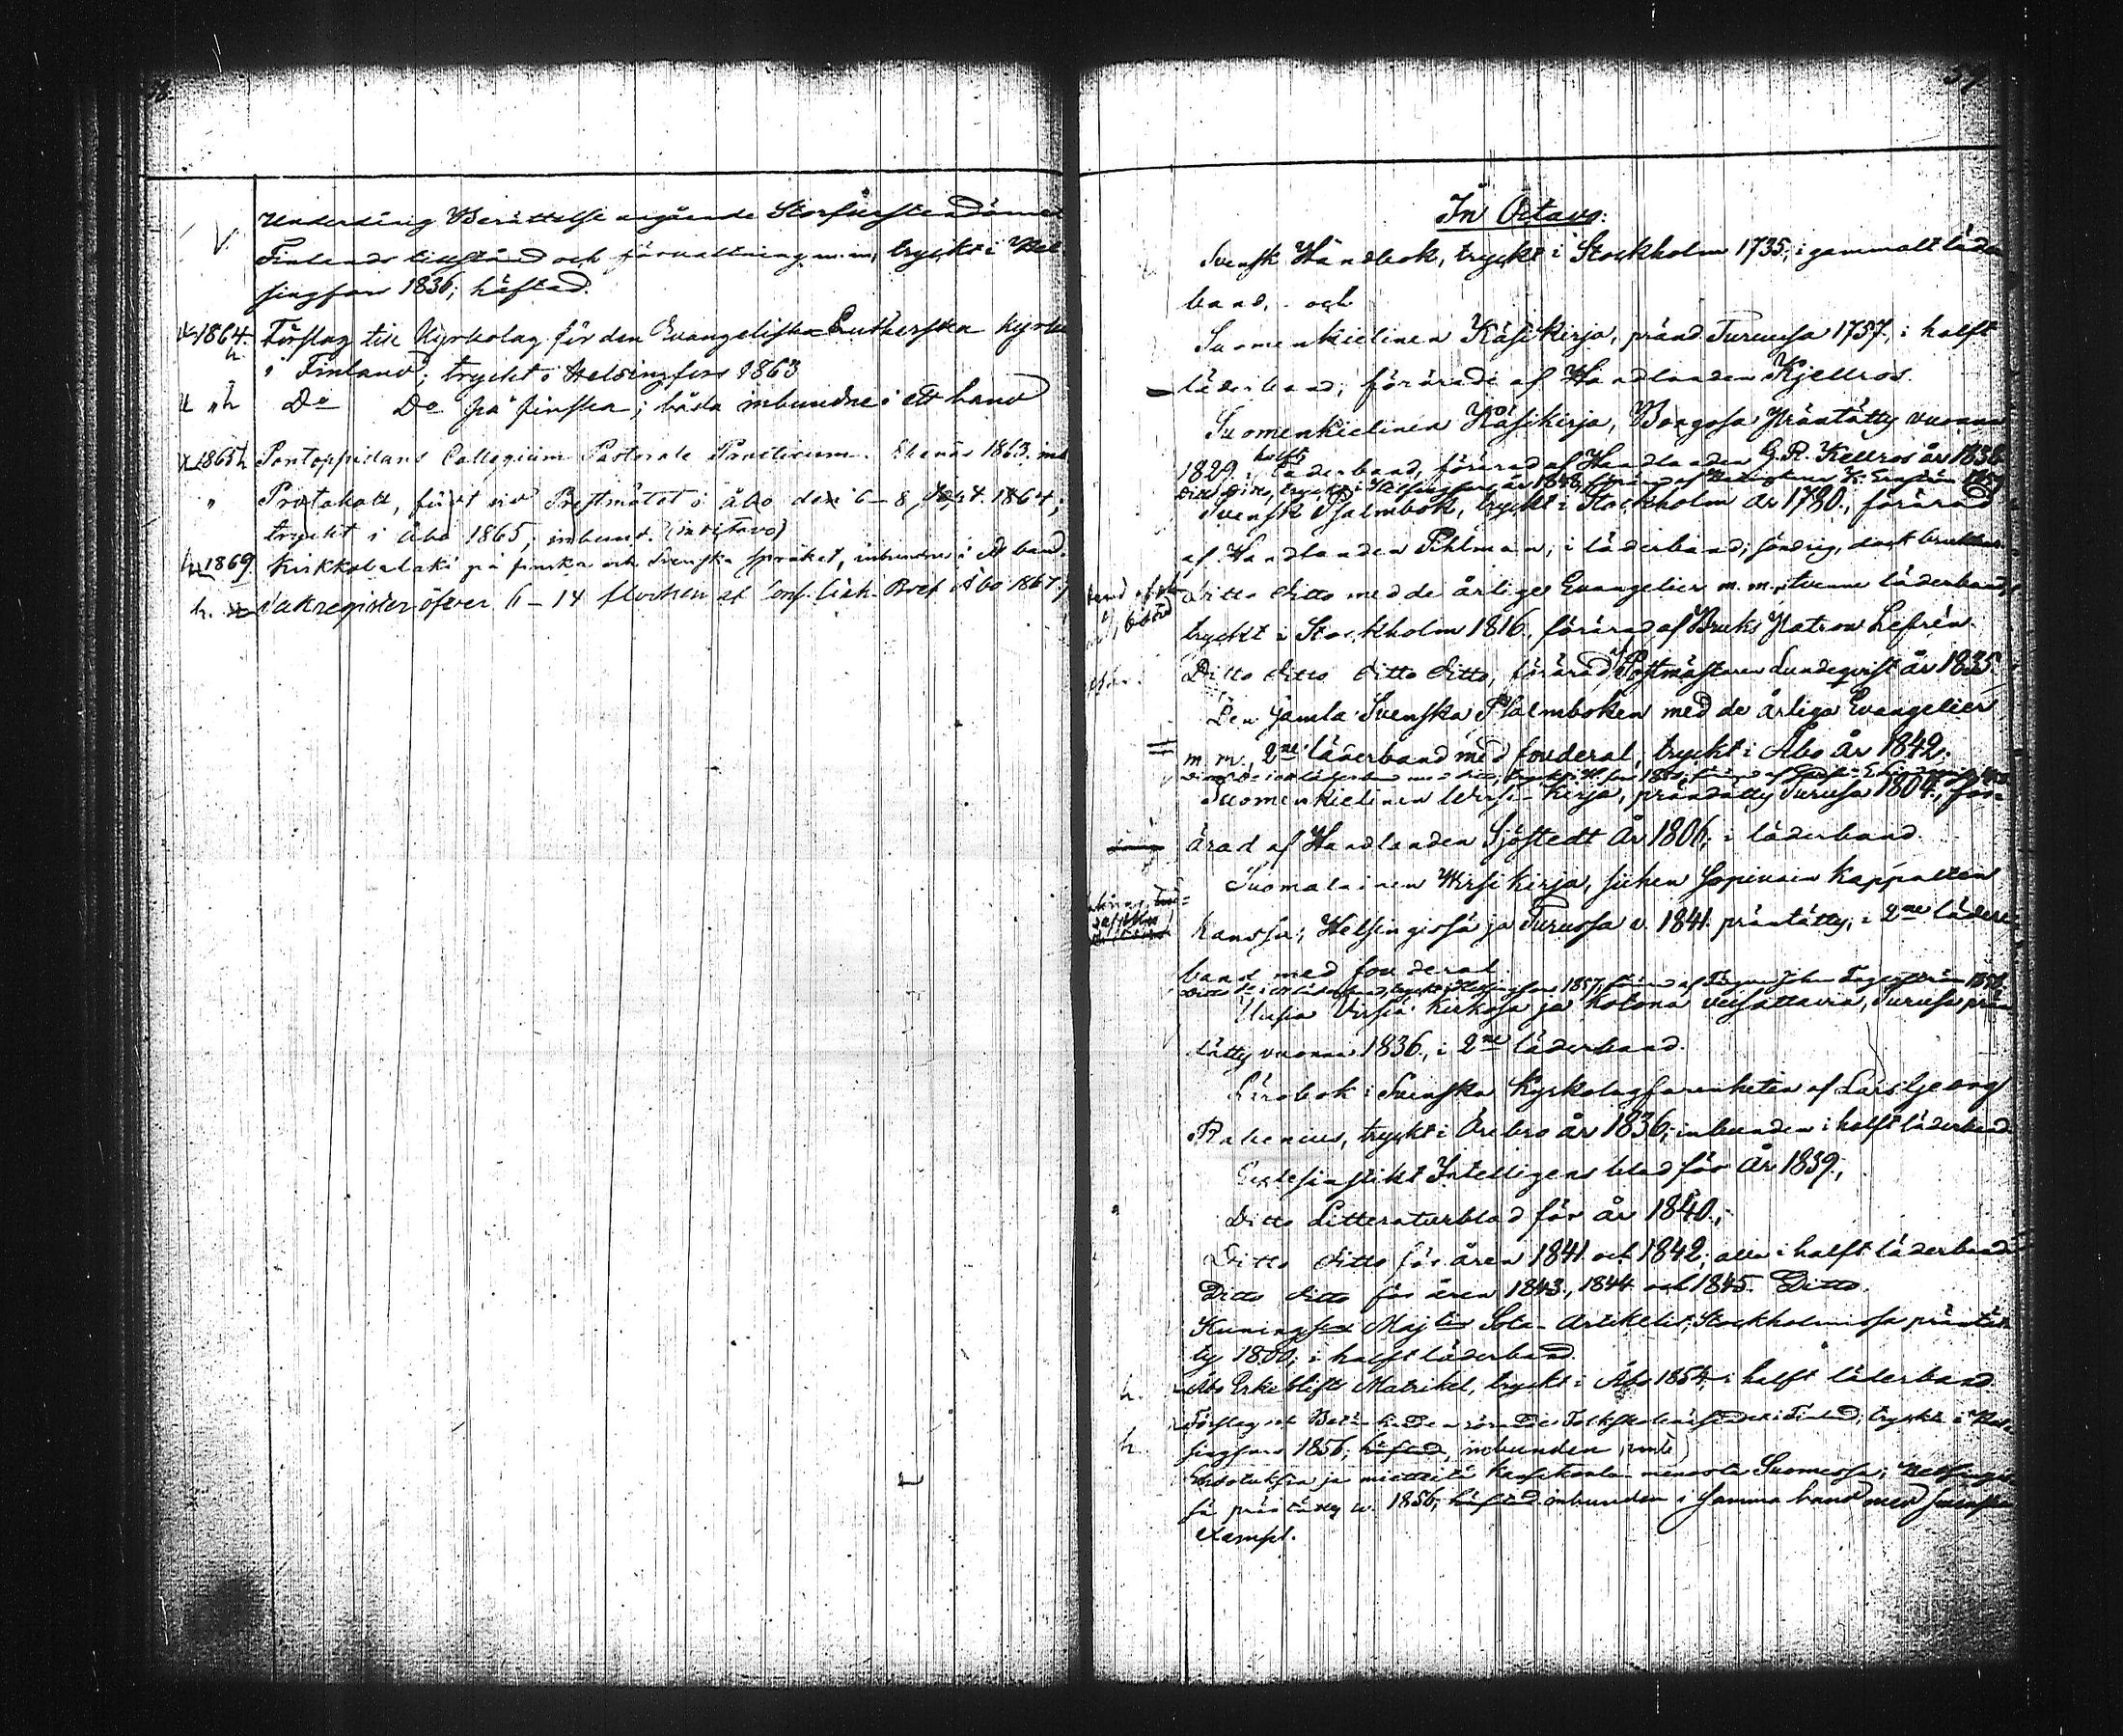 58
V Underdånig Berättelse angående Storfurstendömet
Finlands tillstånd och förvaltning m.m, tryckt i Hel-
singfors 1836; häftad.
1864. Förslag till Kyrkolag för den Evangeliska Lutherska Kyrkan
h
i Finland; tryckt i Helsingfors 1863
" h Do Do på finska; båda inbundne i ett band
1865 h Pontoppidans Collegium Pastorale Practicum. Ekenäs 1863. inb
" Protokoll, fördt vid Prestmötet i Åbo den 6–8 Sept. 1864;
tryckt i Åbo 1865, inbund. (in octavo)
h 1869 Kirkkolalaki på finska och Svenska språket, inbundne i ett band.
h. Sakregister öfver 6–14 flocken af Cons. Circ. Bref Åbo 1867.
59
In Octavo:
Svensk Handbok, tryckt i Stockholm 1735; i gammalt läder
band, och
Suomenkielinen Käsikirja, pränd Turussa 1757, i halft
läderband; förärade af Handlanden Kjellros.
Suomenkielinen Käsikirja, Borgosa Präntätty vuonna
1829. i halft läderband, förärad af Handlanden G.R. Kellros år 1836
Ditto Ditto, tryckt i Helsingfors år 1848,
Svensk Psalmbok, tryckt i Stockholm år 1780., förärad
af Handlanden Pihlman; i läderband; söndrig, dock brukbar
Ditto ditto med de årliga Evangelier m.m., tvenne läderband,
tryckt i Stockholm 1816, förärad af Bruks Patron Lefrén.
Ditto ditto ditto ditto, förärad Postmästaren Lundeqvist år 1835.
Den gamla Svenska Psalmboken med de årliga Evangelier
m.m., 2ne läderband med fouderal, tryckt i Åbo år 1842.
Suomenkielinen Wirsi-Kirja, prändätty Turusa 1804., för-
ärad af Handlanden Sjöstedt år 1806, i läderband.
Suomalainen Wirsikirja, siihen sopiwain kappalten
kanssa; Helsingissä ja Turussa v. 1841 präntätty, i 2ne läder-
band med fouderal.
Uusia Virsiä Kirkosa ja kotona veisattavia, Turusa prän
tätty vuonna 1836, i 2ne läderband.
Lärobok i Svenska Kyrkolagfarenheten af Lars Georg
Rabenius, tryckt i Örebro år 1836; inbunden i halft läderband.
Ecclesiastikt Intelligensblad för år 1839;
Ditto Litteraturblad för år 1840.;
Ditto ditto för åren 1841 och 1842; alla i halft läderband
Ditto ditto för åren 1843, 1844 och 1845. Ditto.
Kuningsen Maj:tin Sota-Artikelit, Stockholmissa präntät
ty 1800; i halft läderband.
h. Åbo Erkestifts Matrikel, tryckt i Åbo 1854, i halft läderband
Förslag och Betänkanden rörande Folkskoleväsendet i Finland; tryckt i Hel-
h. singfors 1856; häftad, inbunden
Ehdotuksia ja mietteitä kansakoulu-menosta Suomessa; Helsingis-
sä präntätty w. 1856, häftad inbunden i samma band med svenska
exempl.